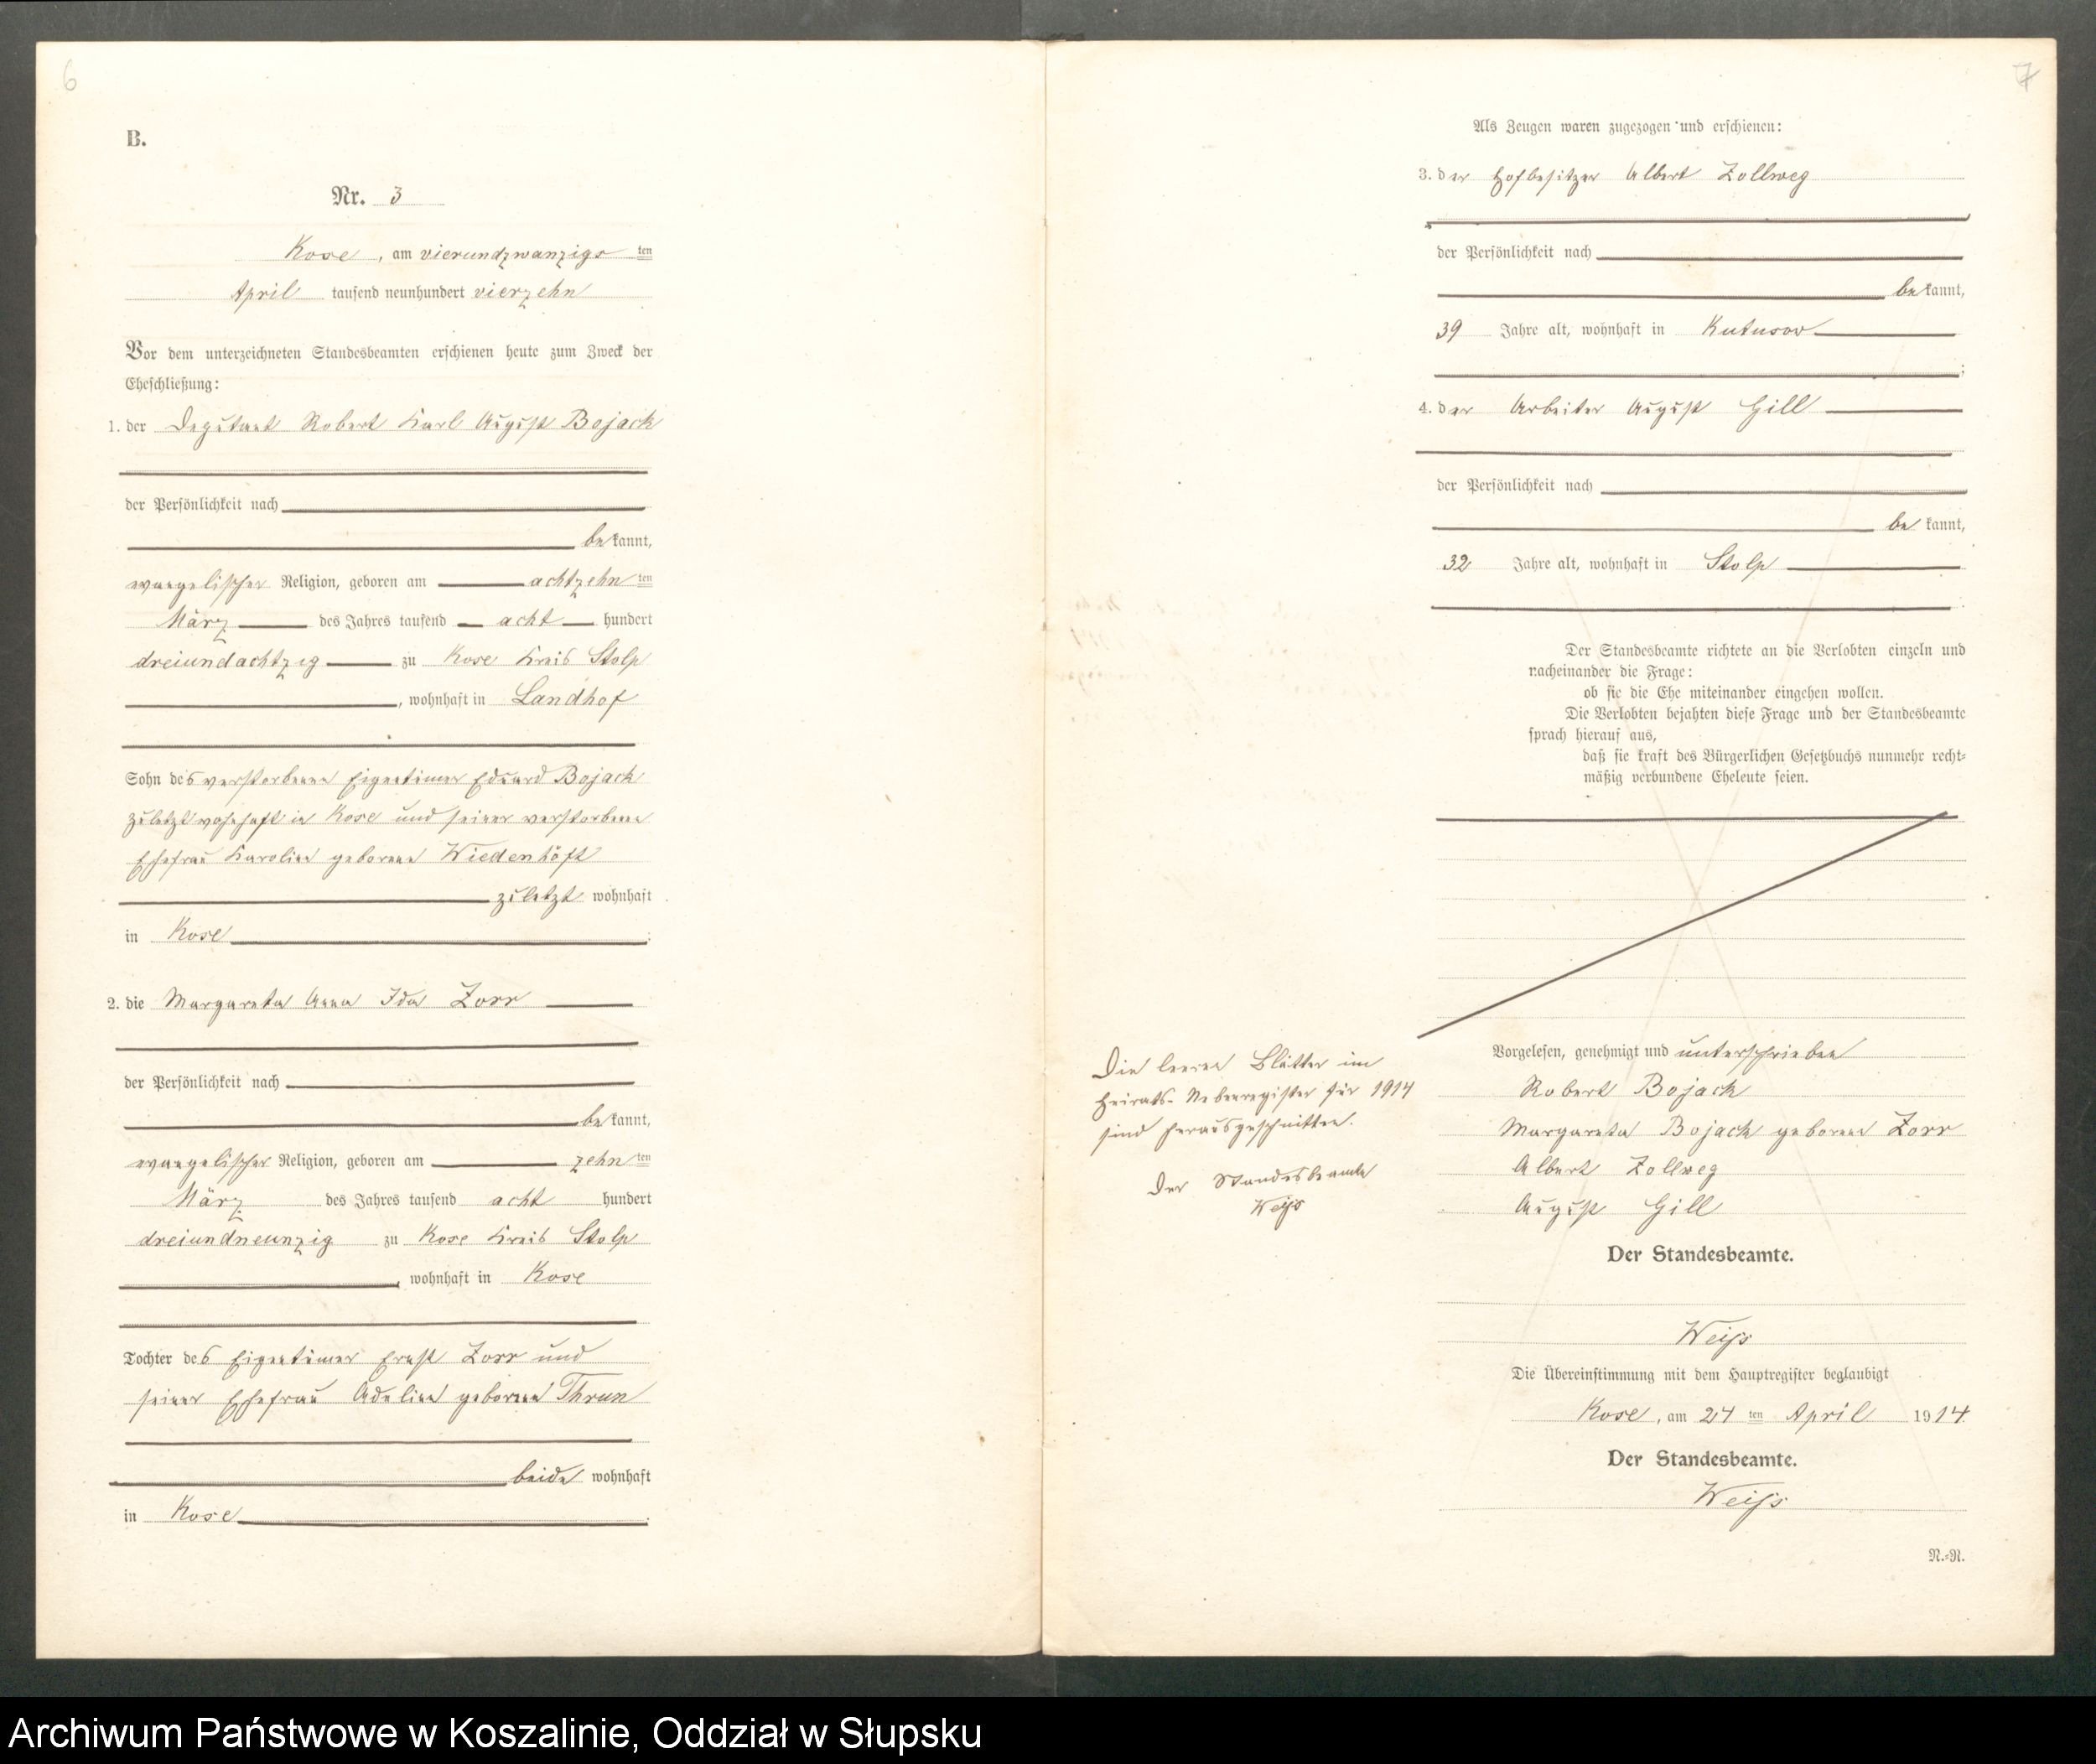 6
B.
Nr. 3
Kose, am vierundzwanzigsten
April tausend neunhundert vierzehn
Vor dem unterzeichneten Standesbeamten erschienen heute zum Zweck der
Eheschließung:
1. der Deputant Robert Karl August Bojack
der Persönlichkeit nach
bekannt,
evangelischer Religion, geboren am achtzehnten
März des Jahres tausend acht hundert
dreiundachtzig zu Kose Kreis Stolp
, wohnhaft in Landhof
Sohn des verstorbenen Eigentümer Eduard Bojack
zuletzt wohnhaft in Kose und seiner verstorbenen
Ehefrau Karoline geborenen Wiedenhöft
zuletzt wohnhaft
in Kose
2. die Margareta Anna Ida Zorr
der Persönlichkeit nach
bekannt,
evangelischer Religion, geboren am zehnten
März des Jahres tausend acht hundert
dreiundneunzig zu Kose Kreis Stolp
, wohnhaft in Kose
Tochter des Eigentümer Ernst Zorr und
seiner Ehefrau Adeline geborenen Thrun
beide wohnhaft
in Kose
7
Als Zeugen waren zugezogen und erschienen:
3. der Hofbesitzer Albert Zollweg
der Persönlichkeit nach
bekannt,
39 Jahre alt, wohnhaft in Kutusow
4. der Arbeiter August Gill
der Persönlichkeit nach
bekannt,
32 Jahre alt, wohnhaft in Stolp
Der Standesbeamte richtete an die Verlobten einzeln und
nacheinander die Frage:
ob sie die Ehe miteinander eingehen wollen.
Die Verlobten bejahten diese Frage und der Standesbeamte
sprach hierauf aus,
daß sie kraft des Bürgerlichen Gesetzbuchs nunmehr recht-
mäßig verbundene Eheleute seien.
Vorgelesen, genehmigt und unterschrieben
Robert Bojack
Margareta Bojack geborene Zorr
Albert Zollweg
August Gill
Der Standesbeamte.
Weiss
Die Übereinstimmung mit dem Hauptregister beglaubigt
Kose, am 24ten April 1914
Der Standesbeamte.
Weiss
N.-R.
Die leeren Blätter im
Heirats-Nebenregister für 1914
sind herausgeschnitten.
Der Standesbeamte
Weiss
Archiwum Państwowe w Koszalinie, Oddział w Słupsku